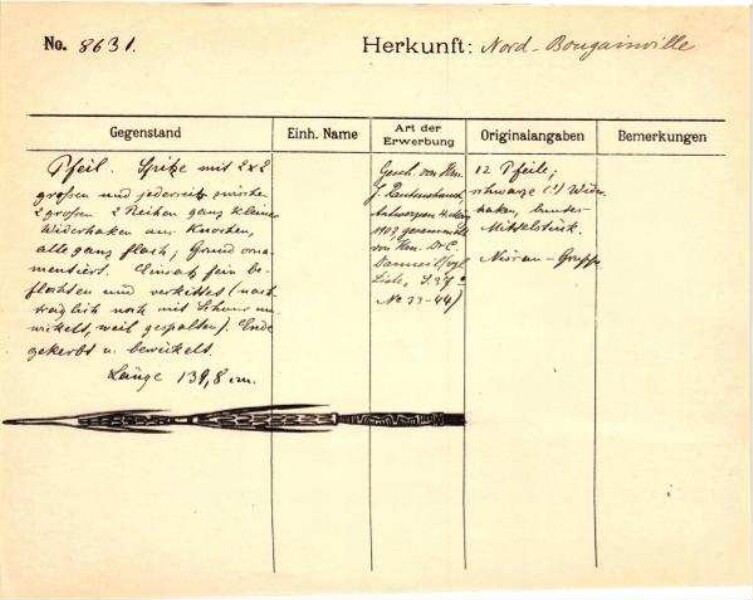 No. 8631.
Herkunft: Nord-Bougainville
Gegenstand
Einh. Name
Art der Erwerbung
Originalangaben
Bemerkungen
Pfeil. Spitze mit 2x2
großen und jederseits zwischen
2 großen 2 Reihen ganz kleine
Widerhaken aus Knochen,
alle ganz flach; Grund orna-
mentiert. Einsatz fein be-
flochten und verkittet (nach-
träglich noch mit Schnur um-
wickelt, weil gespalten). Ende
gekerbt u. bewickelt.
Länge 139,8 cm.
Gesch. von Hrn.
J. Rautenstrauch,
Antwerpen
1907 gesammelt
von Hrn. Dr C.
Danneil (vgl.
Liste, S. 37
No 33-44)
12 Pfeile;
schwarze (!) Wider-
haken, bunter
Mittelstück.
Nissan-Gruppe